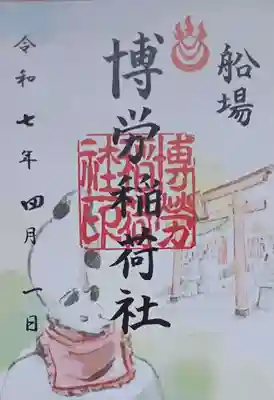 船場
博労稲荷社
令和七年四月一日
博勞
稲荷
社印